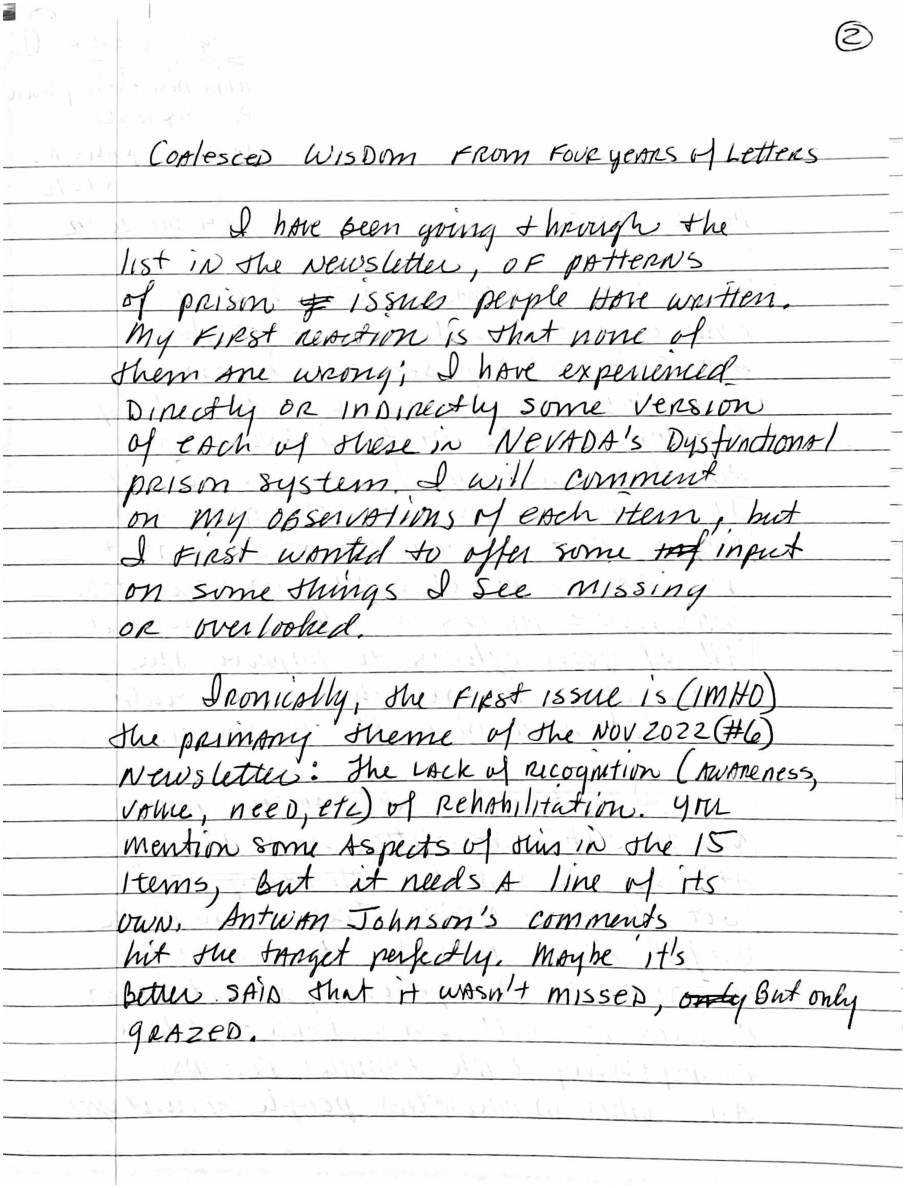 2
Coalesced Wisdom From Four years of Letters
I have been going through the
list in the Newsletter, of patterns
of prison issues people have written.
My first reaction is that none of
them are wrong; I have experienced
Directly or indirectly some version
of each of these in Nevada's Dysfunctional
prison system. I will comment
on my observations of each item, but
I first wanted to offer some input
on some things I see missing
or overlooked.
Ironically, the first issue is (IMHO)
the primary theme of the Nov 2022 (#6)
Newsletter: The lack of recognition (awareness,
value, need, etc) of Rehabilitation. You
mention some aspects of this in the 15
items, but it needs a line of its
own. Antwan Johnson's comments
hit the target perfectly. Maybe it's
better said that it wasn't missed, but only
grazed.